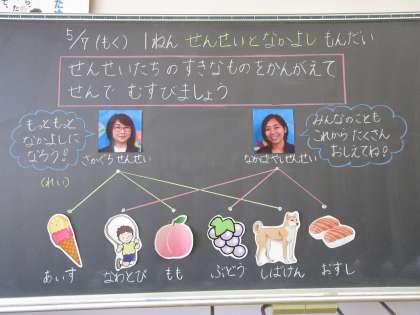 5/7(もく) 1ねん せんせいとなかよし もんだい
せんせいたちのすきなものをかんがえて
せんで むすびましょう
もっともっと
なかよしに
なろう!
さかぐちせんせい
なかばやしせんせい
みんなのことも
これからたくさん
おしえてね!
(れい)
あいす
なわとび
もも
ぶどう
しばけん
おすし